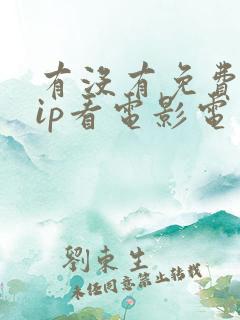 有沒有免費
ip看電影電
劉東生
未经同意禁止转载